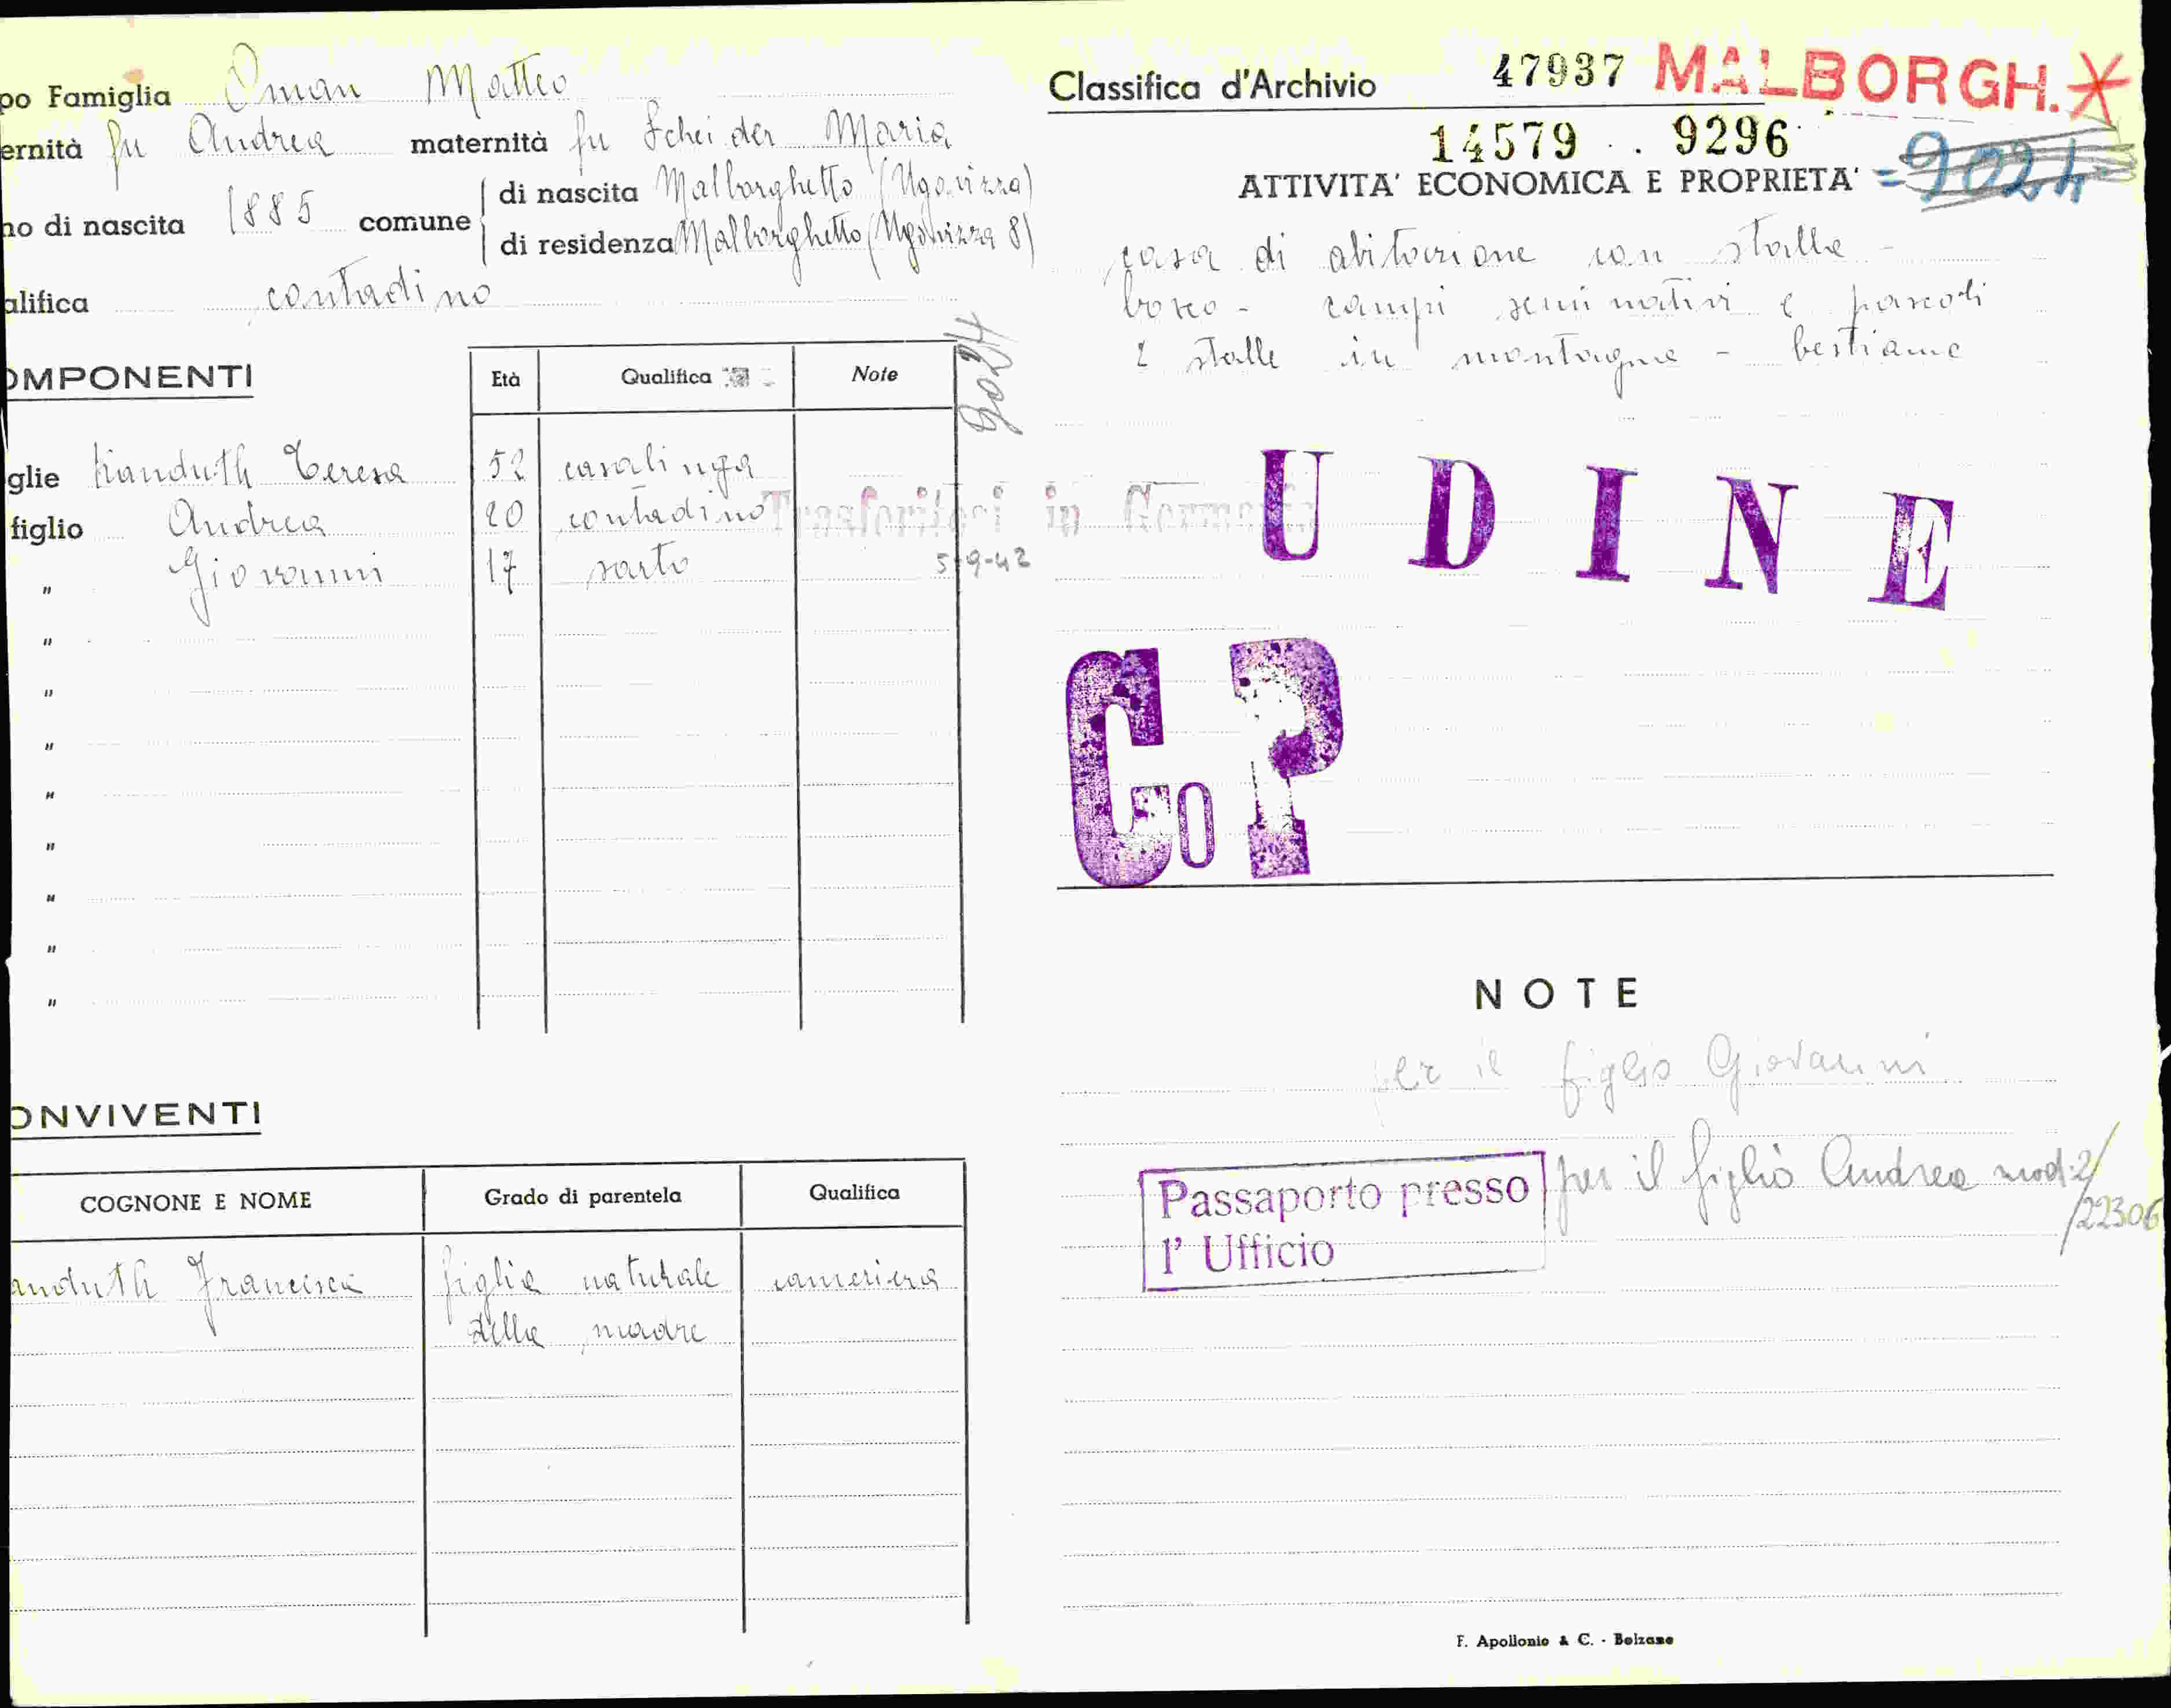 po Famiglia Oman Matteo
ernità fu Andrea maternità fu Scheider Maria
no di nascita 1885 comune
di nascita Malborghetto (Ugovizza)
di residenza Malborghetto (Ugovizza 8)
alifica contadino
OMPONENTI
Età Qualifica Note
9024
glie Kanduth Teresa 52 casalinga
figlio Andrea 20 contadino
Trasferitosi in Germania
" Giovanni 17 sarto
5-9-42
"
"
"
"
"
"
"
"
ONVIVENTI
COGNONE E NOME Grado di parentela Qualifica
anduth Francisca figlia naturale cameriera
della madre
Classifica d'Archivio 47937 MALBORGH.
14579 9296
ATTIVITA' ECONOMICA E PROPRIETA' = 9024
casa di abitazione con stalla -
bosco - campi seminativi e pascoli
2 stalle in montagna - bestiame
UDINE
Co P
NOTE
per il figlio Giovanni
Passaporto presso
l' Ufficio
per il figlio Andrea mod. 2/
/22306
F. Apollonio & C. - Bolzano